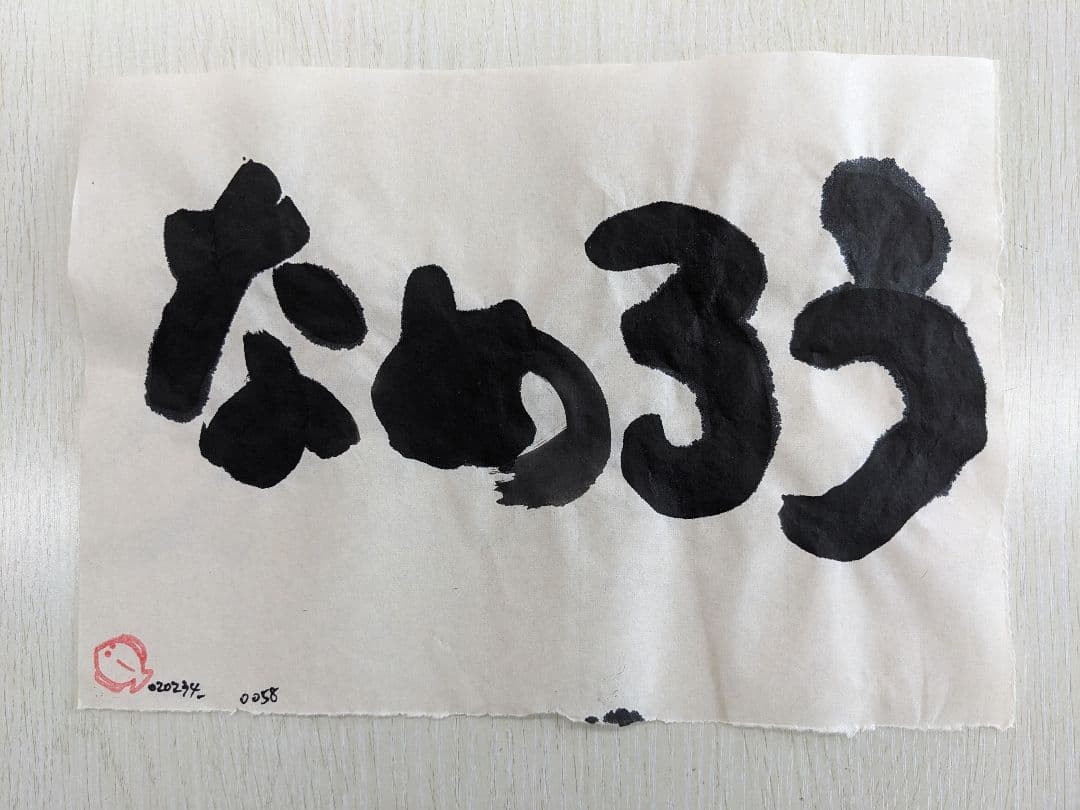 なめろう
020234 0058